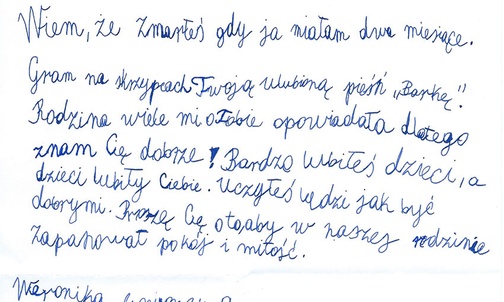 Wiem, że zmarłeś gdy ja miałam dwa miesiące.
Gram na skrzypcach Twoją ulubioną pieśń „Barkę”.
Rodzina wiele mi o Tobie opowiadała dlatego
znam Cię dobrze! Bardzo lubiłeś dzieci, a
dzieci lubiły Ciebie. Uczyłeś ludzi jak być
dobrymi. Proszę Cię o to, aby w naszej rodzinie
zapanował pokój i miłość.
Weronika